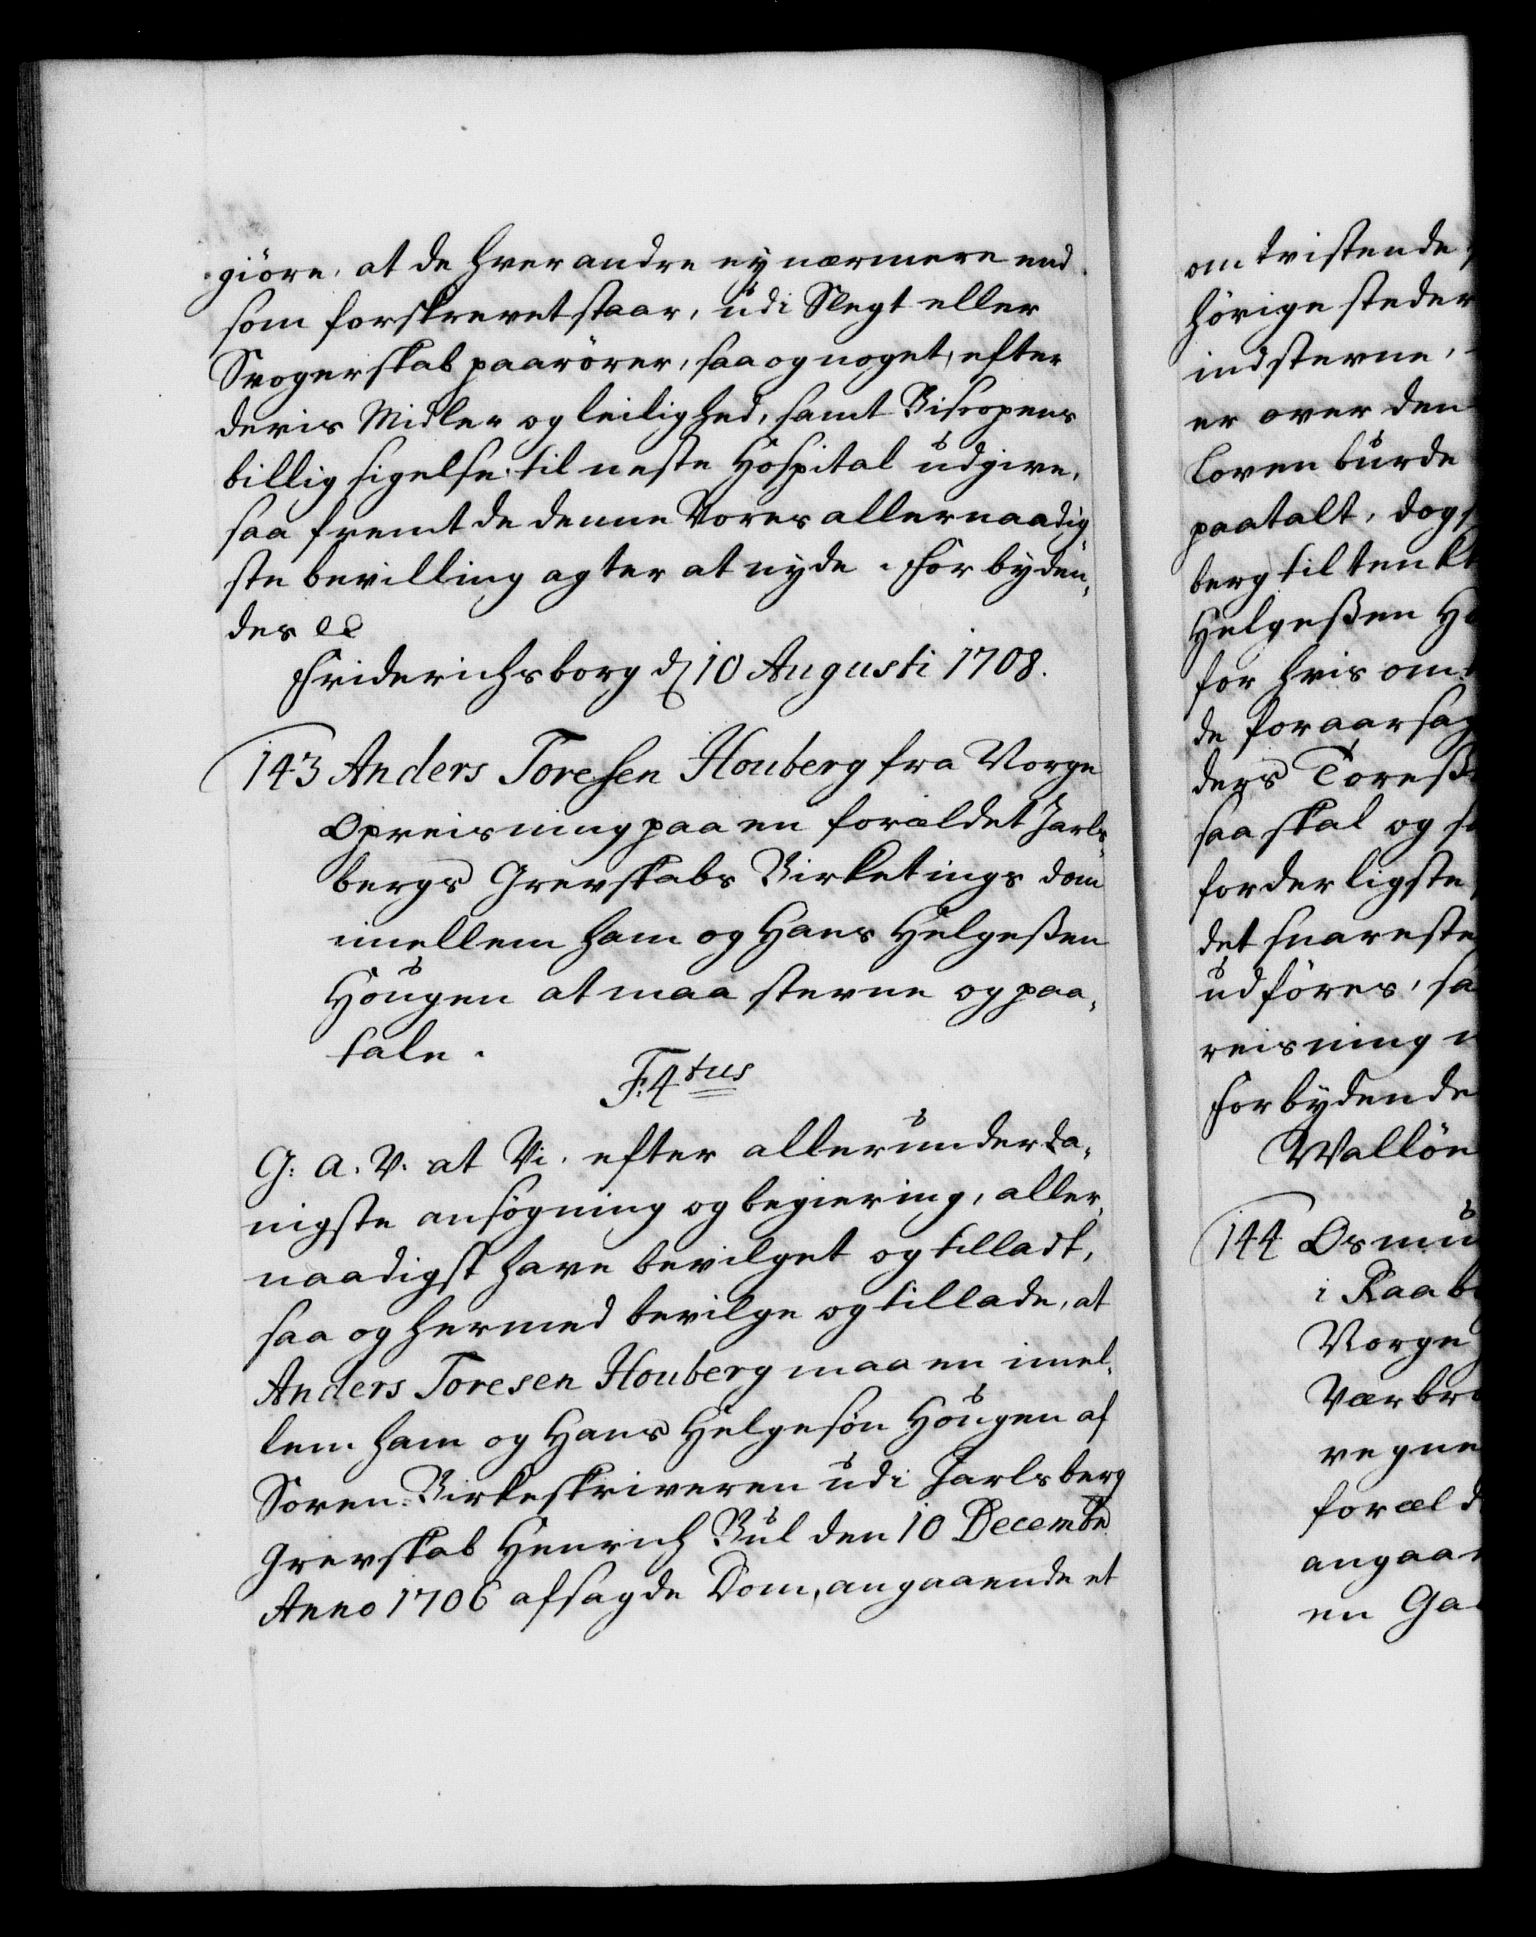 giöre, at de hver andre ey nærmere end
som forskrevet staar, udi Slegt eller
Svogerskab paarörer, saa og noget, efter
deris Midler og leilighed, samt Biscopens
billig sigelse, til neste Hospital udgive,
saa fremt de denne Vores allernaadig,
ste bevilling agter at nyde. Forbyden,
des etc
Friderichsborg d 10 Augusti 1708.
143 Anders Toresen Houberg fra Norge
Opreisning paa en forældet Jarls,
bergs Grevskabs Birketings dom
imellem ham og Hans Helgeßen
Hougen at maa stevne og paa,
tale.
F. 4tus
G. A. V. at Vi, efter allerunderda,
nigste ansögning og begiering, aller,
naadigst have bevilget og tilladt,
saa og hermed bevilge og tillade, at
Anders Toresen Houberg maa en imel,
lem ham og Hans Helgesön Hougen af
Soren Birkeskriveren udi Jarlsberg
Grevskab Henrich Bul den 10 Decembr
Anno 1706 afsagde Dom, angaaende et
om tvistende
hörige steder
indstevne,
er over den
Loven burde
paatalt, dog
berg tiltenkt
Helgeßen Ho
for hvis om
de foraarsag
ders Toreß
saa skal og s
forderligste
det snareste
udföres, sa
reisning n
Forbydende
Wallöe
144 Osmu
i Raab
Norge
Værbr
regne
foræld
angaa
en Ga